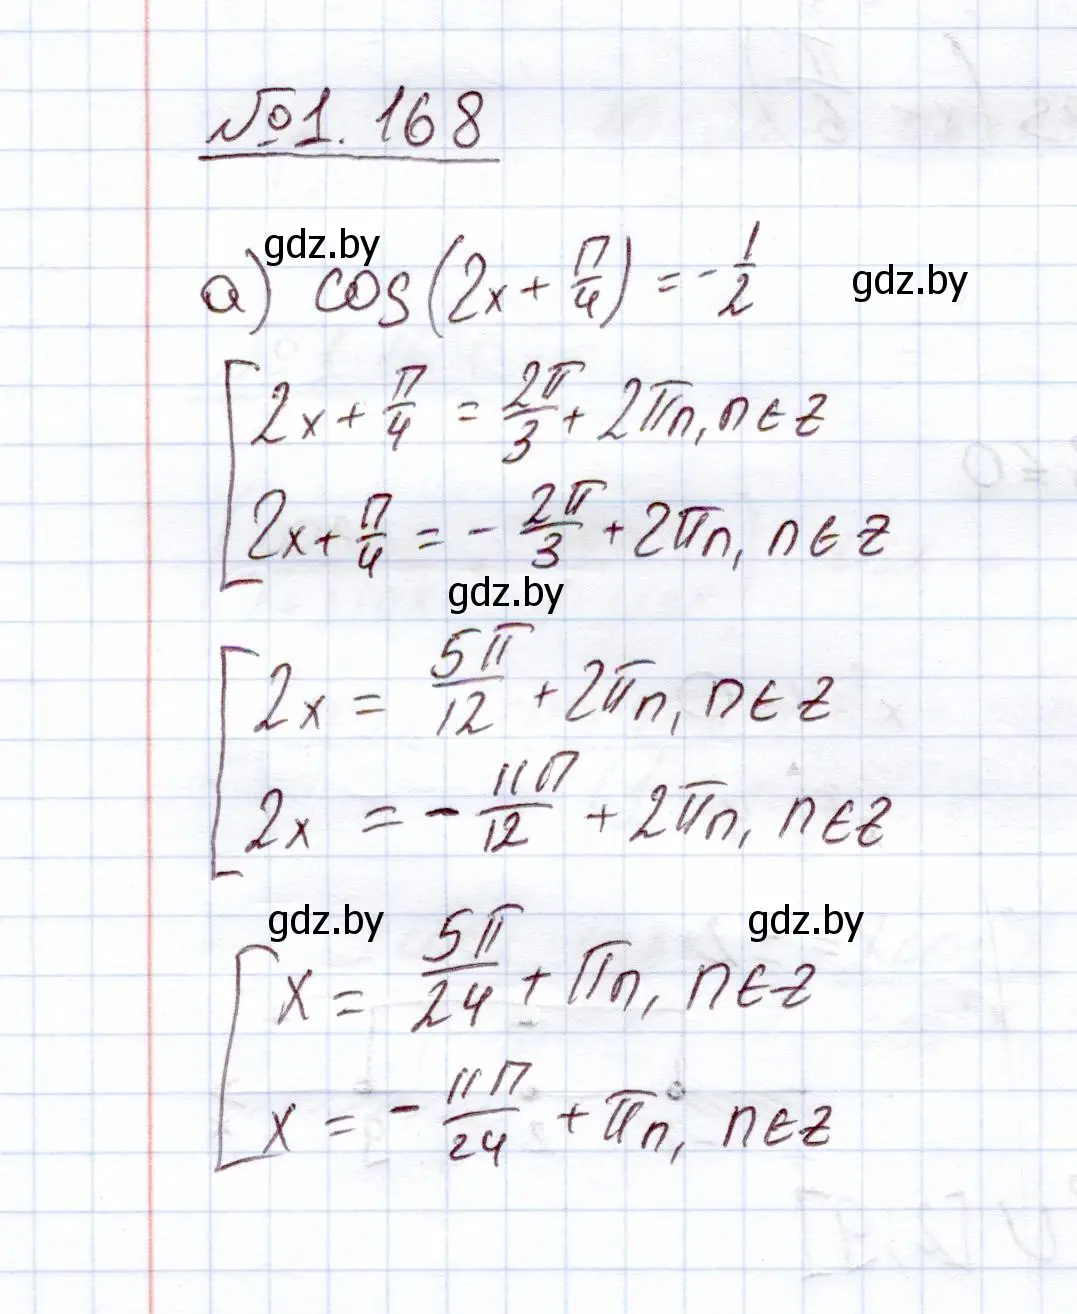 №1.168
gdz.by
а) cos(2x + π/4) = -1/2
gdz.by
[ 2x + π/4 = 2π/3 + 2πn, n∈Z
2x + π/4 = - 2π/3 + 2πn, n∈Z
gdz.by
[ 2x = 5π/12 + 2πn, n∈Z
2x = - 11π/12 + 2πn, n∈Z
gdz.by gdz.by
[ x = 5π/24 + πn, n∈Z
x = - 11π/24 + πn, n∈Z